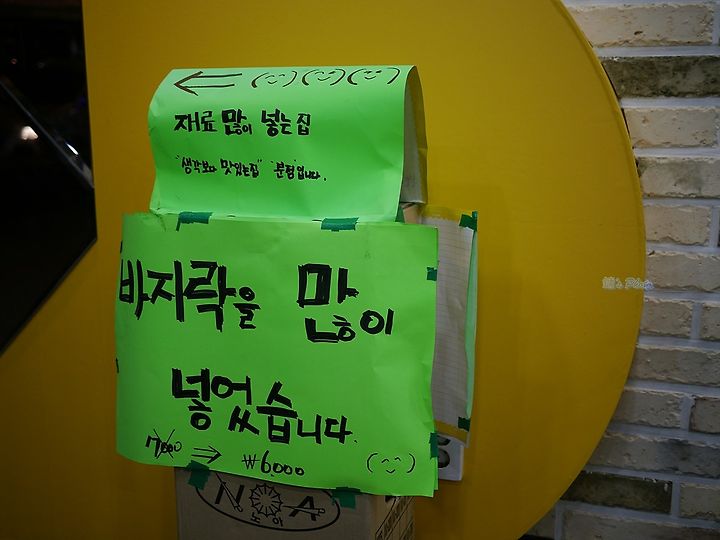 재료 많이 넣는 집
"생각보다 맛있는집" "분점"입니다.
바지락을 많이
넣었습니다.
7,000 ⇒ ₩6,000
NOA
노아